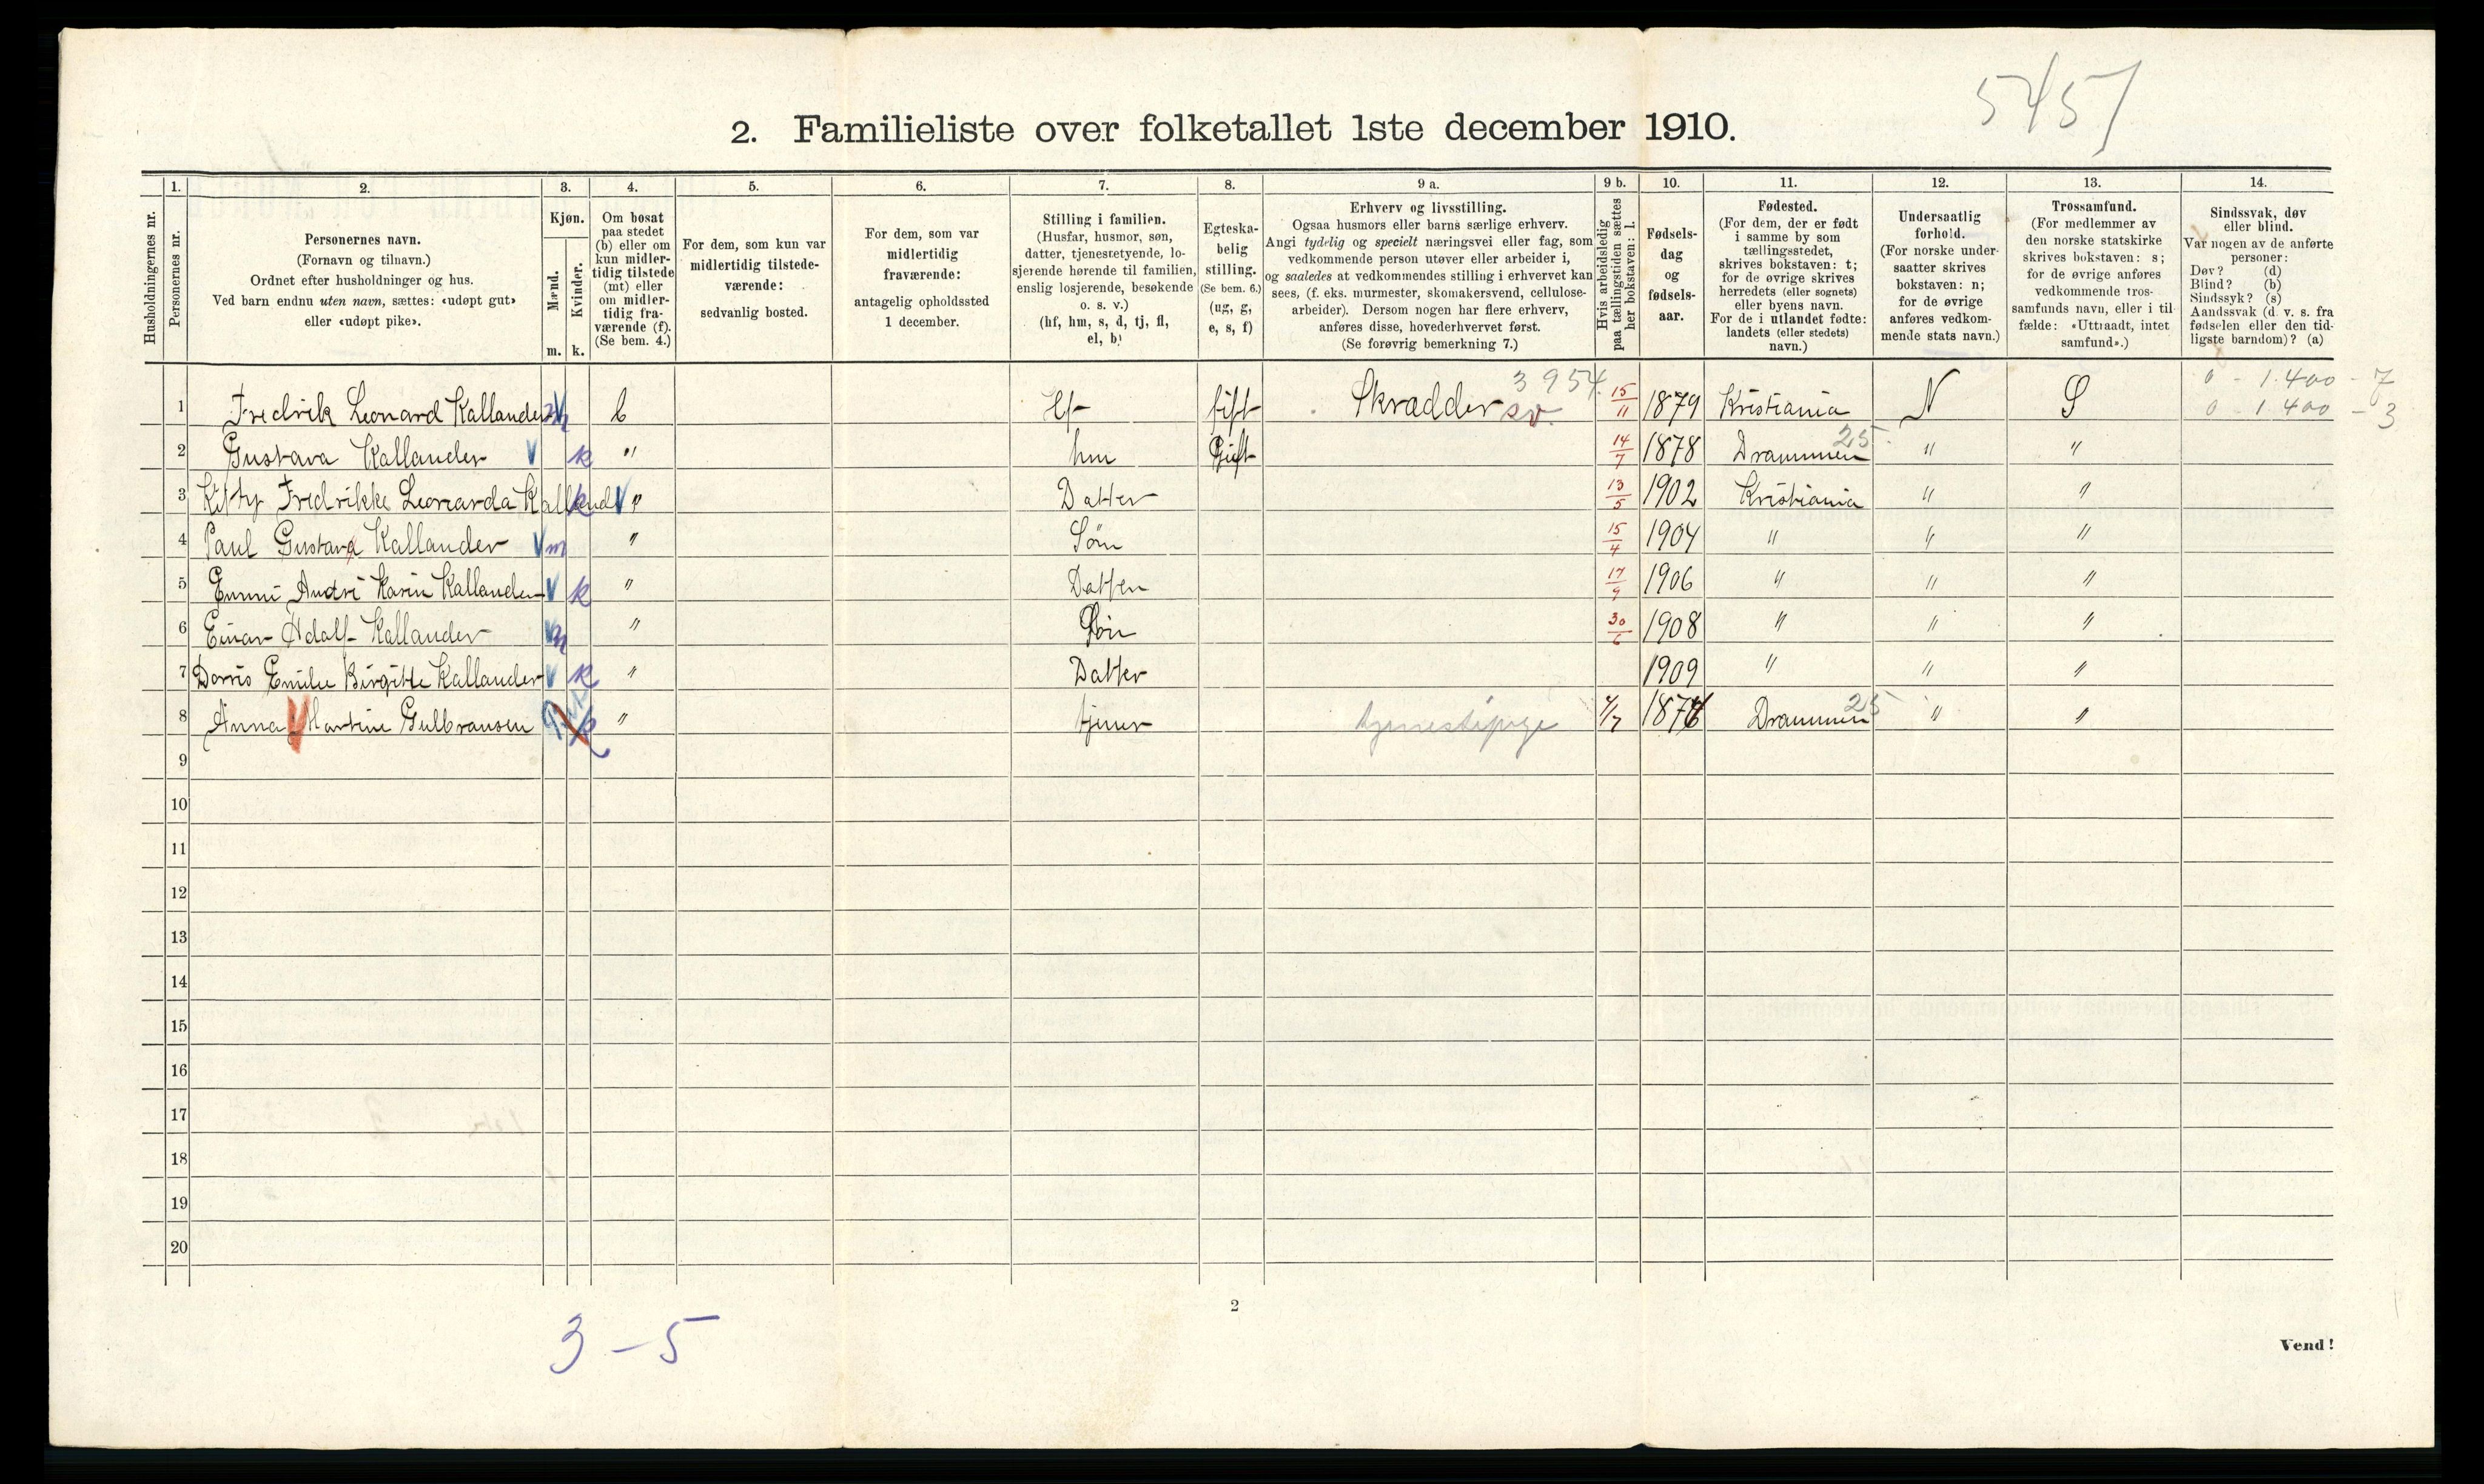 5457
2. Familieliste over folketallet 1ste december 1910.
Husholdningernes nr.
1. Personernes nr.
2. Personernes navn.
(Fornavn og tilnavn.)
Ordnet efter husholdninger og hus.
Ved barn endnu uten navn, sættes: «udøpt gut»
eller «udøpt pike».
3. Kjøn.
Mænd. m.
Kvinder. k.
4. Om bosat
paa stedet
(b) eller om
kun midler-
tidig tilstede
(mt) eller
om midler-
tidig fra-
værende (f).
(Se bem. 4.)
5. For dem, som kun var
midlertidig tilstede-
værende:
sedvanlig bosted.
6. For dem, som var
midlertidig
fraværende:
antagelig opholdssted
1 december.
7. Stilling i familien.
(Husfar, husmor, søn,
datter, tjenestetyende, lo-
sjerende hørende til familien,
enslig losjerende, besøkende
o. s. v.)
(hf, hm, s, d, tj, fl,
el, b)
8. Egteska-
belig
stilling.
(Se bem. 6.)
(ug, g,
e, s, f)
9 a. Erhverv og livsstilling.
Ogsaa husmors eller barns særlige erhverv.
Angi tydelig og specielt næringsvei eller fag, som
vedkommende person utøver eller arbeider i,
og saaledes at vedkommendes stilling i erhvervet kan
sees, (f. eks. murmester, skomakersvend, cellulose-
arbeider). Dersom nogen har flere erhverv,
anføres disse, hovederhvervet først.
(Se forøvrig bemerkning 7.)
9 b. Hvis arbeidsledig
paa tællingstiden sættes
her bokstaven: l.
10. Fødsels-
dag
og
fødsels-
aar.
11. Fødested.
(For dem, der er født
i samme by som
tællingsstedet,
skrives bokstaven: t;
for de øvrige skrives
herredets (eller sognets)
eller byens navn.
For de i utlandet fødte:
landets (eller stedets)
navn.)
12. Undersaatlig
forhold.
(For norske under-
saatter skrives
bokstaven: n;
for de øvrige
anføres vedkom-
mende stats navn.)
13. Trossamfund.
(For medlemmer av
den norske statskirke
skrives bokstaven: s;
for de øvrige anføres
vedkommende tros-
samfunds navn, eller i til-
fælde: «Uttraadt, intet
samfund».)
14. Sindssvak, døv
eller blind.
Var nogen av de anførte
personer:
Døv? (d)
Blind? (b)
Sindssyk? (s)
Aandssvak (d. v. s. fra
fødselen eller den tid-
ligste barndom)? (a)
1 Fredrik Leonard Kallander m b Hf gift Skrædder sv. 3954. 15/11 1879 Kristiania N S 0 - 1.400 - 7
0 - 1 400 - 3
2 Gustava Kallander k " hm Gift 14/7 1878 Drammen 25 " "
3 Kitty Fredrikke Leonarda Kalland k " Datter 13/5 1902 Kristiania " "
4 Paul Gustava Kallander m " Søn 15/4 1904 " " "
5 Emmi Andri Karin Kallander k " Datter 17/9 1906 " " "
6 Einar Adolf Kallander m " Søn 30/6 1908 " " "
7 Dorris Emilie Birgitte Kallander k " Datter 1909 " " "
8 Anna Martine Gulbransen k " tjener tjenestepige 4/7 1874 Drammen 25 " "
9
10
11
12
13
14
15
16
17
18
19
20
2
3 - 5
Vend!